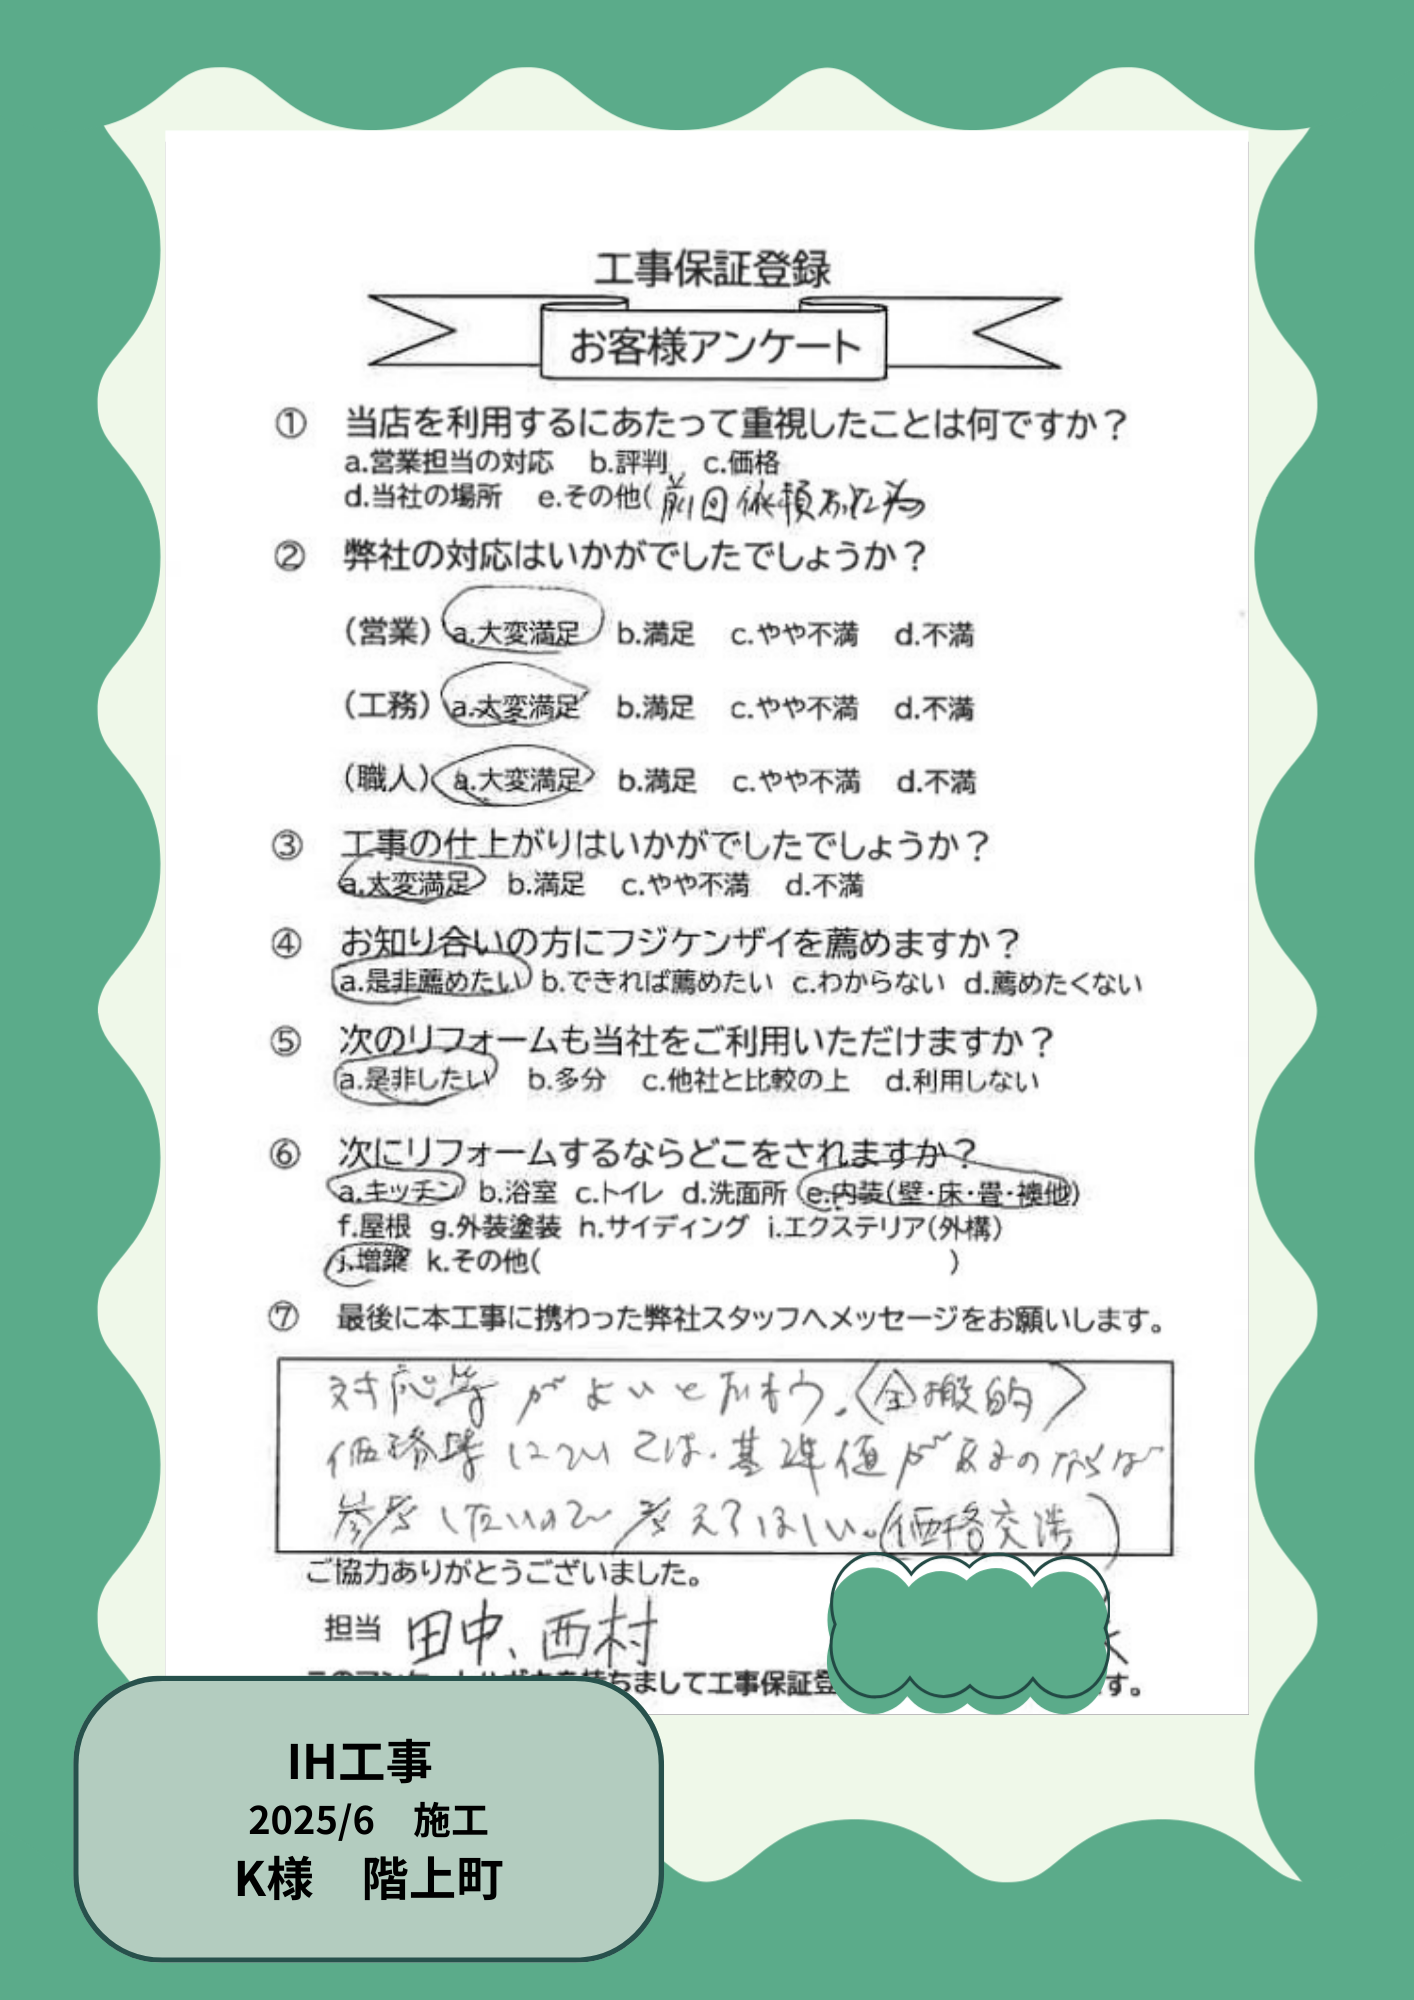 工事保証登録
お客様アンケート
① 当店を利用するにあたって重視したことは何ですか？
a.営業担当の対応 b.評判 c.価格
d.当社の場所 e.その他(前回依頼した為
② 弊社の対応はいかがでしたでしょうか？
(営業) a.大変満足 b.満足 c.やや不満 d.不満
(工務) a.大変満足 b.満足 c.やや不満 d.不満
(職人) a.大変満足 b.満足 c.やや不満 d.不満
③ 工事の仕上がりはいかがでしたでしょうか？
a.大変満足 b.満足 c.やや不満 d.不満
④ お知り合いの方にフジケンザイを薦めますか？
a.是非薦めたい b.できれば薦めたい c.わからない d.薦めたくない
⑤ 次のリフォームも当社をご利用いただけますか？
a.是非したい b.多分 c.他社と比較の上 d.利用しない
⑥ 次にリフォームするならどこをされますか？
a.キッチン b.浴室 c.トイレ d.洗面所 e.内装(壁・床・畳・襖他)
f.屋根 g.外装塗装 h.サイディング i.エクステリア(外構)
j.増築 k.その他( )
⑦ 最後に本工事に携わった弊社スタッフへメッセージをお願いします。
対応等がよいと思う。〈全搬的〉
価格等については、基準値があるのならば
参考したいので考えてほしい。(価格交渉)
ご協力ありがとうございました。
担当 田中、西村
ちまして工事保証登 す。
IH工事
2025/6 施工
K様 階上町